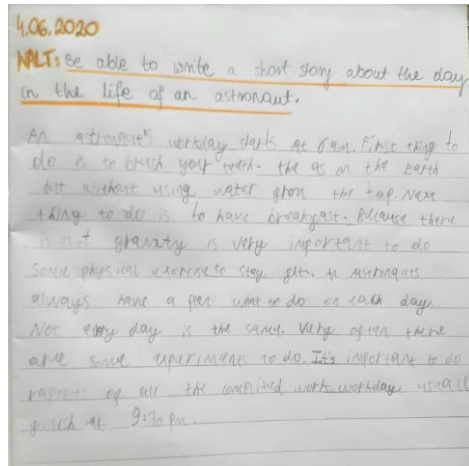 4.06.2020
WALT: Be able to write a short story about the day
in the life of an astronaut.
An astronaut's workday starts at 6 am. First thing to
do is to brush your teeth. the as on the Earth
but without using water from the tap. Next
thing to do is to have breakfast. Because there
is not gravity is very important to do
some physical exercise to stay astronauts
always have a plan what to do on each day.
Not every day is the same. Very often there
are some experiments to do. It's important to do
raports of all the complited work. workday usuall
finish at 9:30 pm.